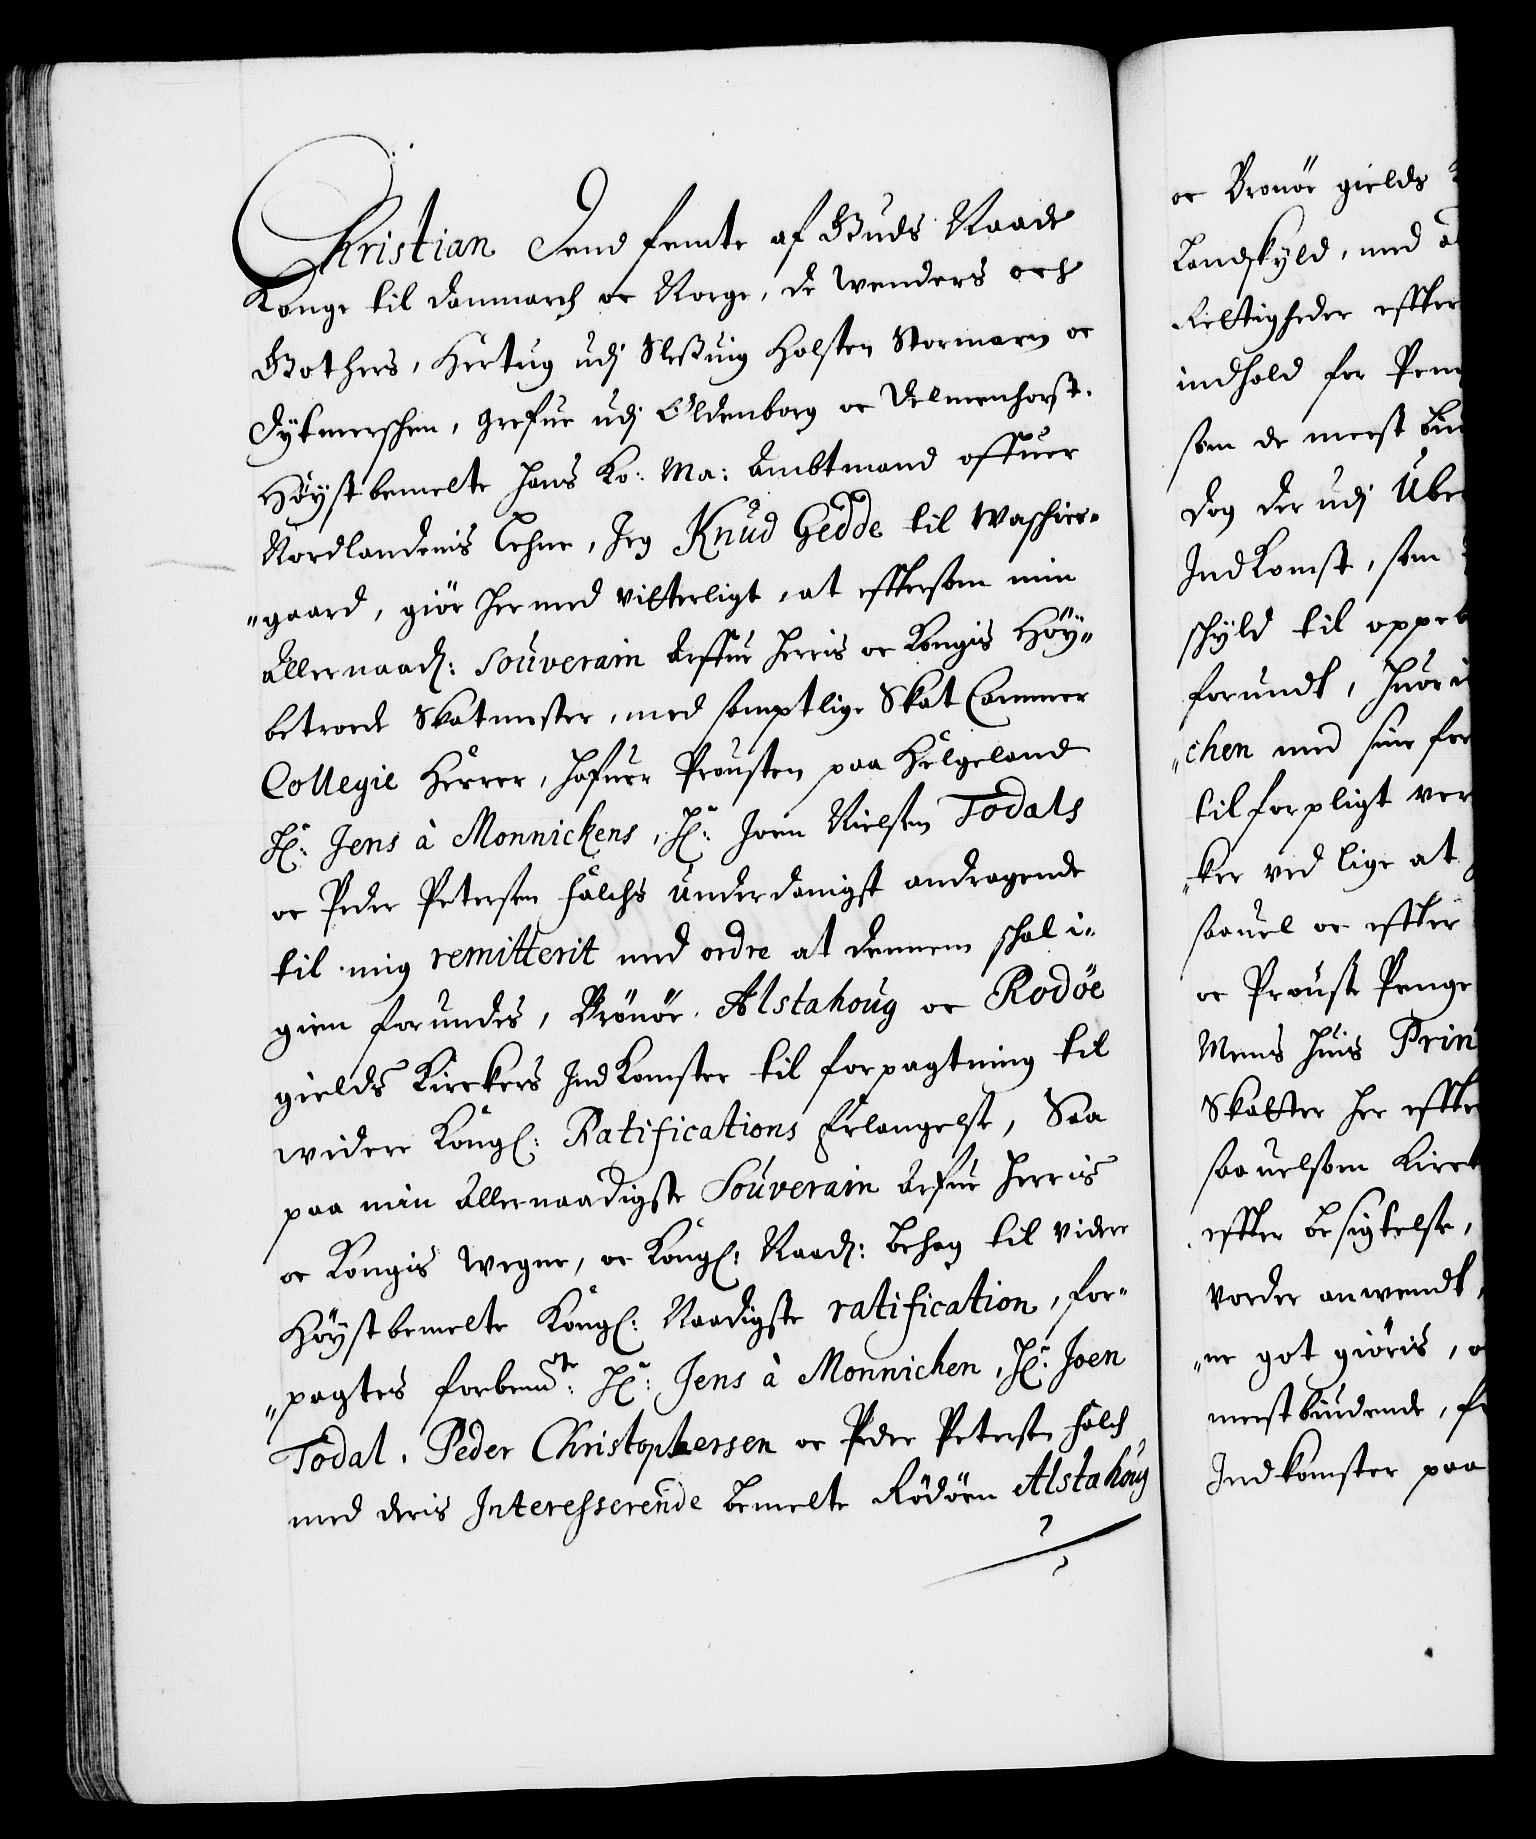 Christian Dend femte af Guds Naade
Konge til Danmarch oc Norge, de Wenders och
Gothers, Hertug udj Sleßuig Holsten Stormarn oc
Dytmerschen, Grefue udj Oldenborg oc Delmenhorst.
Høystbemelte Hans Ko: Ma: Ambtmand offuer
Nordlandenis Lehne, Jeg Knud Gedde til Waschier-
"gaard, giör hermed vitterligt, at efftersom min
Allernaad: Souverain Arffue Herris oc Kongis Høy-
betroede Skatmester, med samptlige Skat Cammer
Collegie Herrer, hafuer Prousten paa Helgeland
Hr: Jens à Monnickens, Hr: Joen Nielsen Todals
oc Peder Petersen Falchs underdanigst andragende
til mig remitterit med ordre at dennem schal i-
gien forundes, Brönöe Alstahoug oc Rodöe
gields Kirckers Indkomster til forpagtning til
widere Kongl: Ratifications Erlangelse, Saa
paa min Allernaadigste Souverain Arfue Herris
oc Kongis Wegne, oc Kongl: Naad: behag til videre
Høystbemelte Kongl: Naadigste ratification, for-
"pagtes forbemte: Hr: Jens à Monnichen, Hr: Joen
Todal, Peder Christophersen oc Peder Petersen Falch
med deris Interesserende bemelte Rödöen Alstahoug
oc Brönöe gields
Landskyld, med
Rettigheder effter
indhold for
som de meest
dog der udj
Indkomst, som
schyld til
forundt,
"chen med sine
tilforpligt
"ker ved lige at
saauel oc effter
oc Prouste Penge
Mens huis
Skatter her
saauelsom
effter besigtelse,
vorder anwendt,
"ne got giöris,
meestbiudende,
Indkomster paa